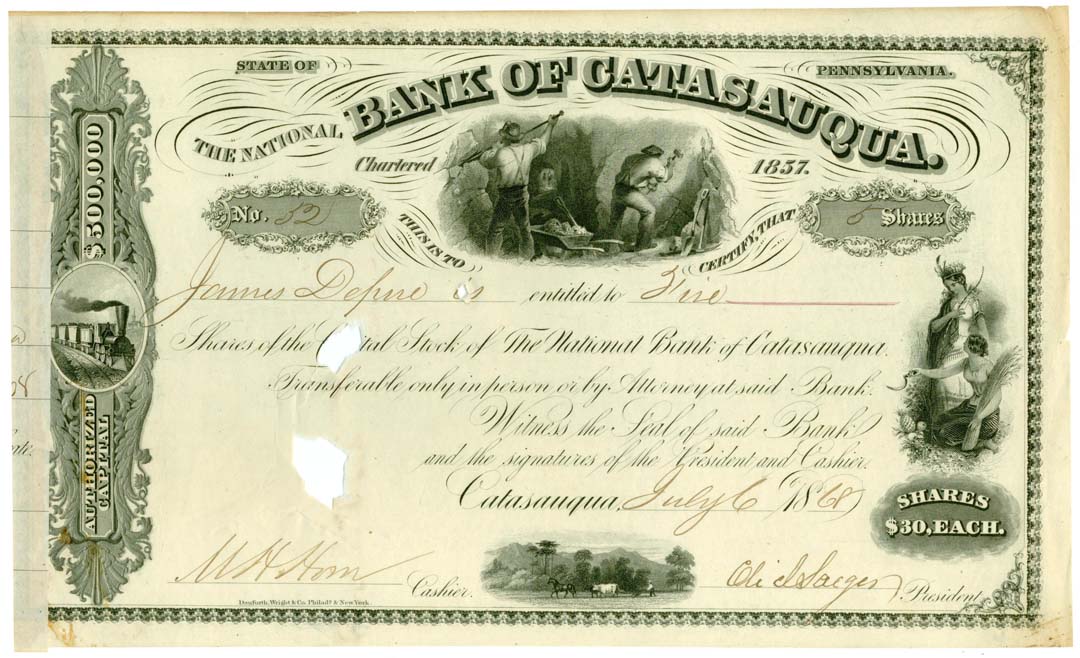 STATE OF
PENNSYLVANIA.
THE NATIONAL
BANK OF CATASAUQUA.
Chartered
1857.
No. 52
THIS IS TO
CERTIFY, THAT
5 Shares
$500,000
AUTHORIZED
CAPITAL
James is entitled to Five
Shares of the tal Stock of The National Bank of Catasauqua.
Transferable only in person or by Attorney at said Bank.
Witness the Seal of said Bank
and the signatures of the President and Cashier.
Catasauqua, July 6 1868
SHARES
$30, EACH.
M H Horn Cashier.
President
Danforth, Wright & Co. Philada. & New York.